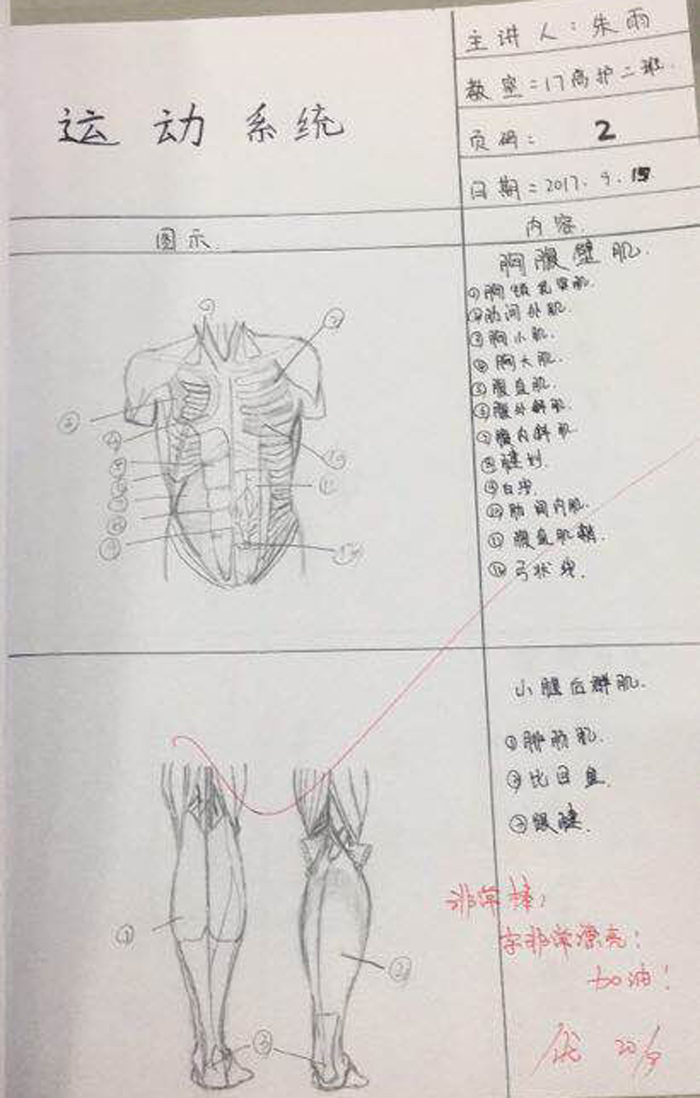 运动系统
主讲人：朱雨
教室：17高护二班.
页码： 2
日期：2017.9.19
图示
内容
胸腹壁肌.
①胸锁乳突肌.
②肋间外肌
③胸小肌.
④胸大肌.
⑤腹直肌
⑥腹外斜肌.
⑦腹内斜肌
⑧腱划.
⑨白线.
⑩肋间内肌.
⑪腹直肌鞘.
⑫弓状线.
小腿后群肌.
①腓肠肌.
②比目鱼
③跟腱.
①
②
③
非常棒，
字非常漂亮！
加油！
20/9